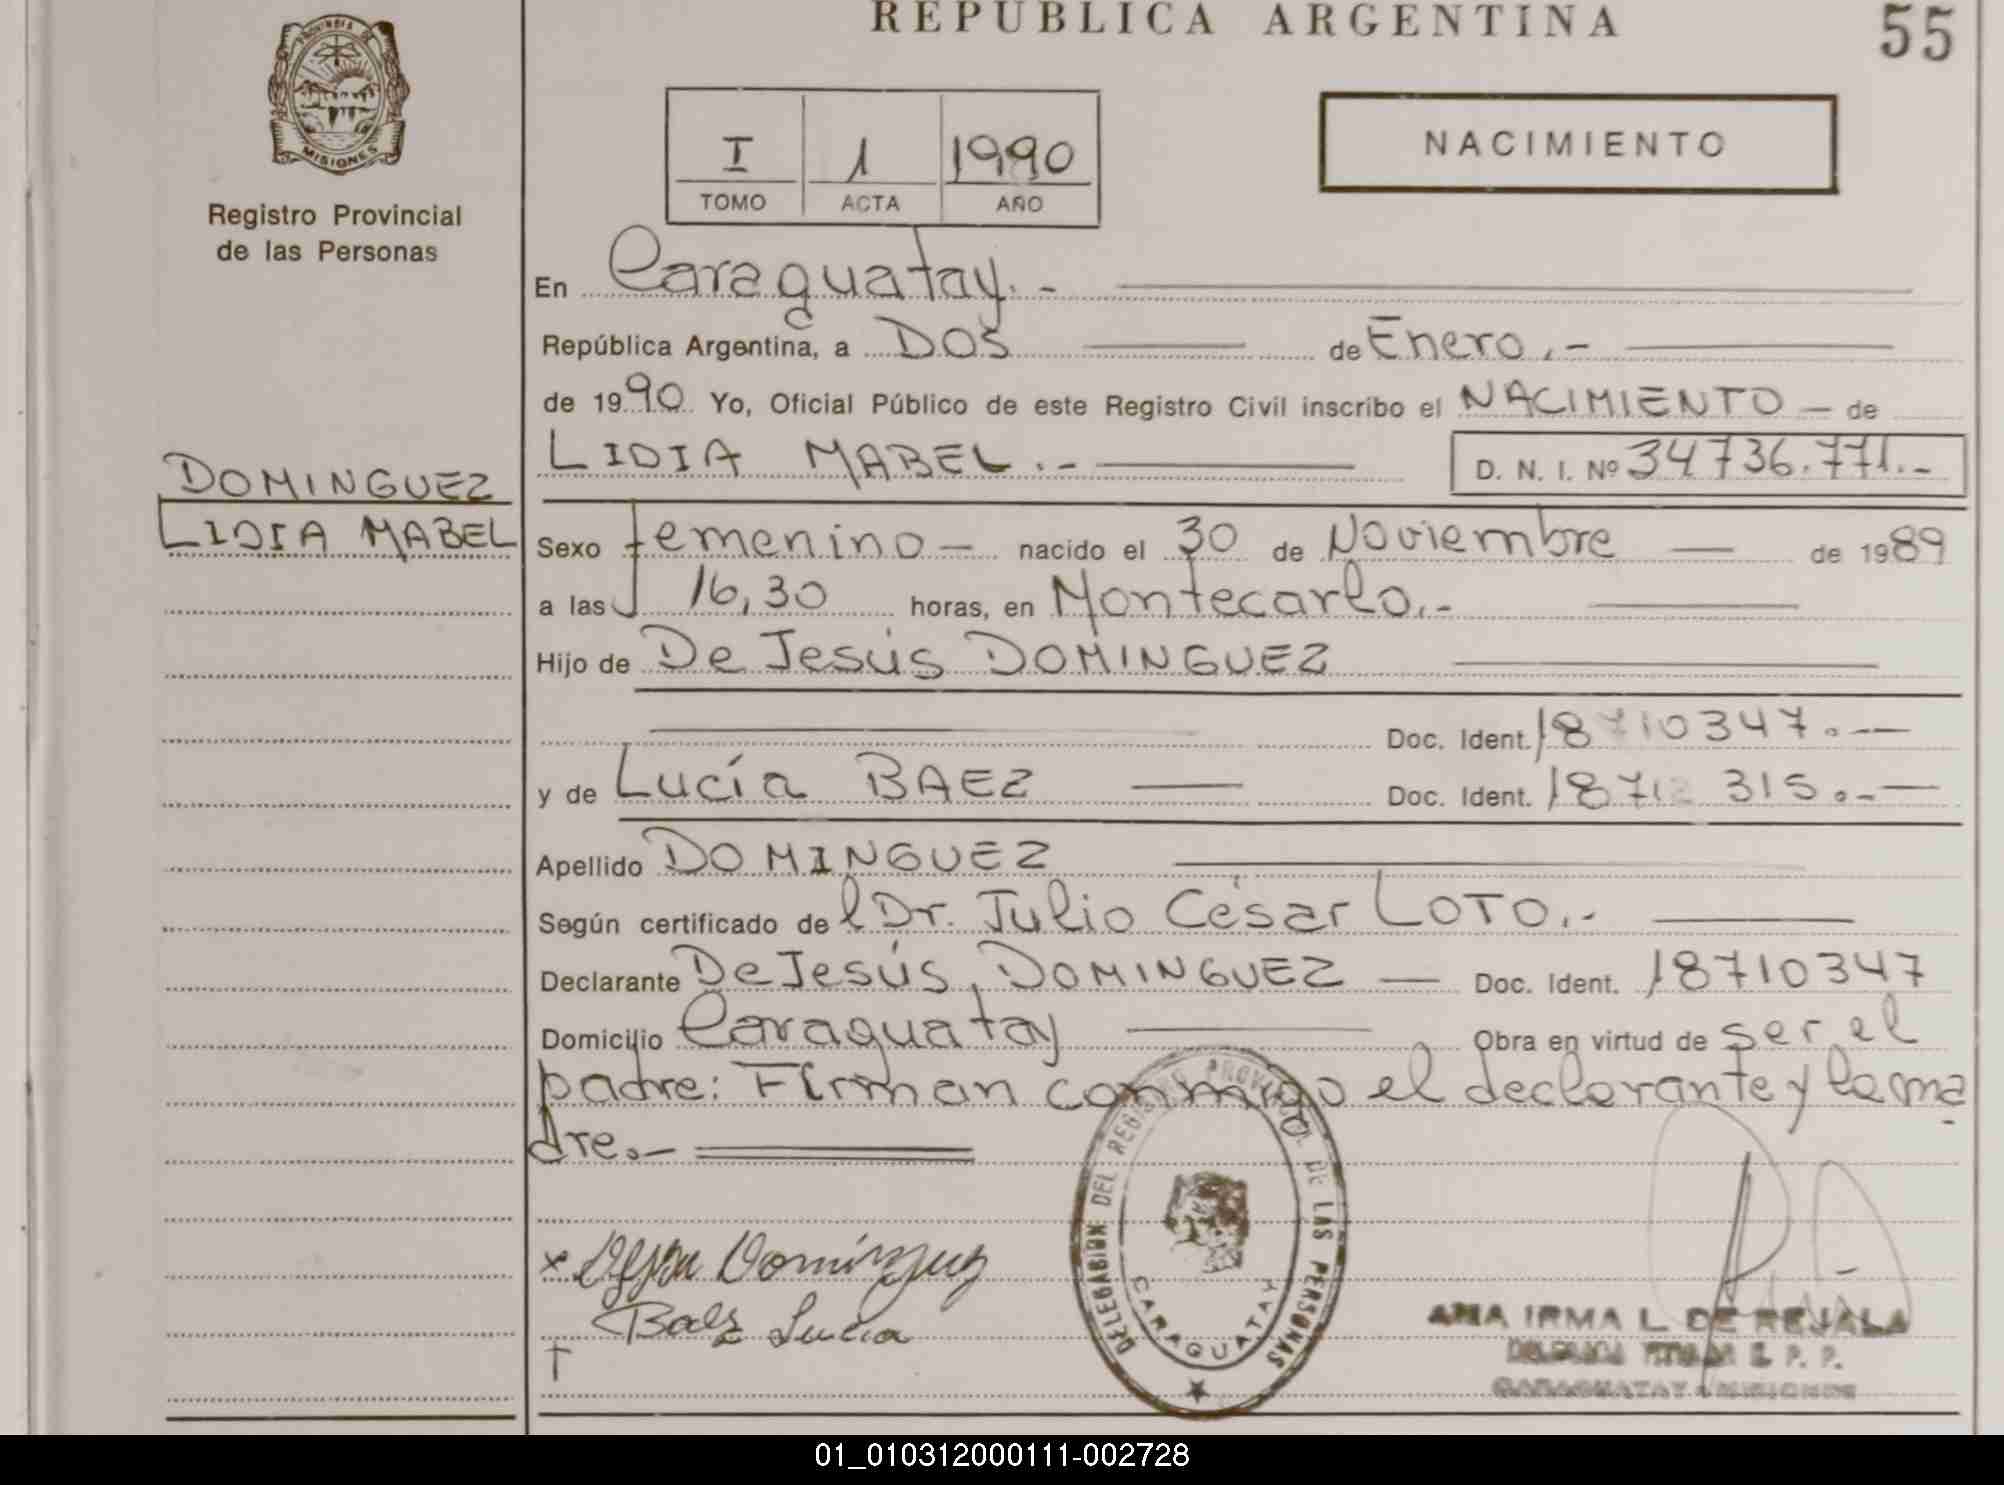 REPUBLICA ARGENTINA
55
PROVINCIA DE
MISIONES
Registro Provincial
de las Personas
I 1 1990
TOMO ACTA AÑO
NACIMIENTO
En Caraguatay.-
República Argentina, a DOS de Enero.-
de 1990 Yo, Oficial Público de este Registro Civil inscribo el NACIMIENTO - de
LIDIA MABEL.- D. N. I. Nº 34736.771.-
DOMINGUEZ
LIDIA MABEL
Sexo femenino - nacido el 30 de Noviembre de 1989
a las 16,30 horas, en Montecarlo.-
Hijo de De Jesús DOMINGUEZ
Doc. Ident. 18710347.-
y de Lucía BAEZ Doc. Ident. 1871 315.-
Apellido DOMINGUEZ
Según certificado del Dr. Julio César LOTO.-
Declarante De Jesús, DOMINGUEZ - Doc. Ident. 18710347
Domicilio Caraguatay Obra en virtud de ser el
padre: Firman conmigo el declarante y la ma
dre.-
DELEGACION DEL REGISTRO PROVINCIAL DE LAS PERSONAS
CARAGUATAY
x Domínguez
Baez Lucia
ANA IRMA L. DE REJALA
DELEGADA TITULAR R. P. P.
CARAGUATAY - MISIONES
01_010312000111-002728